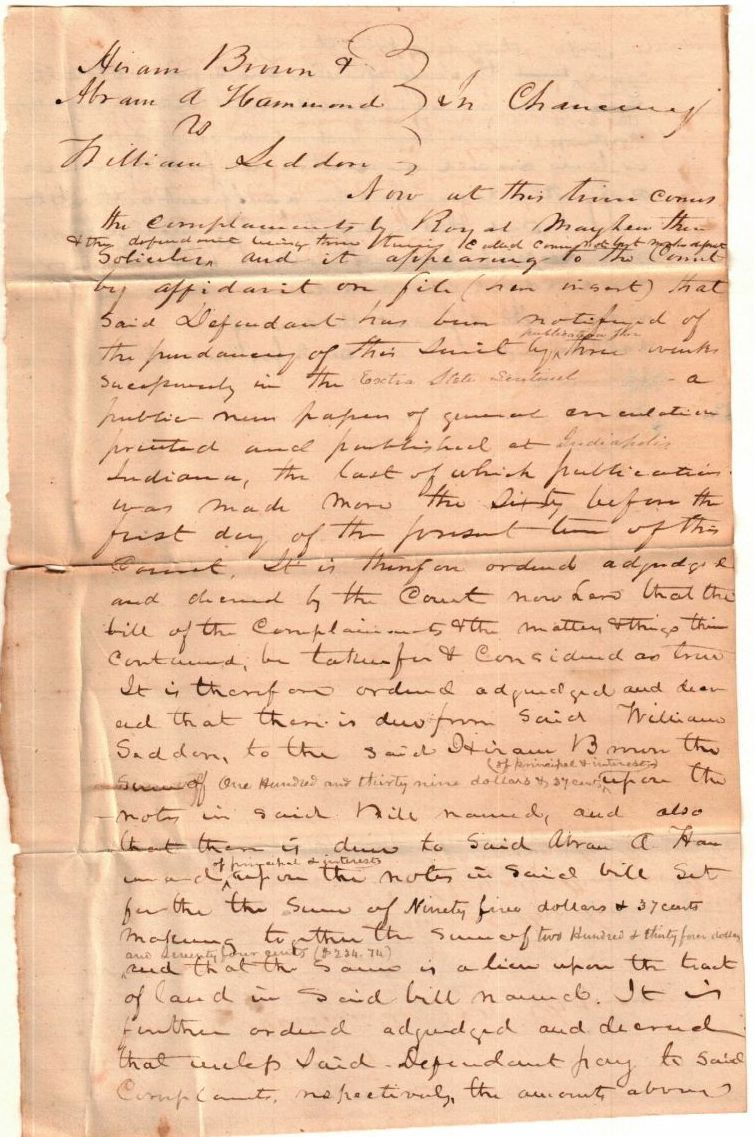 Hiram Brown &
Abram A Hammond } In Chancery
vs
William Seddon
Now at this time comes
the complainants by Royal Mayhew their
& the defendant being three times called comes not but makes default
Solicitor, and it appearing to the Court
by affidavit on file (here insert) that
said Defendant has been notified of
publication
the pendancy of this Suit by three weeks
successively in the Extra State Sentinel a
public news paper of general circulation
printed and published at Indiapolis
Indiana, the last of which publication
was made more the Sixty before the
first day of the present term of this
Court, It is therefore ordered adjudged
and decreed by the Court now here that the
bill of the Complainants & the matters & things therein
contained, be taken for & Considered as true
It is therefore ordered adjudged and decre
ed that there is due from Said William
Seddon, to the said Hiram Brown the
(of principal & interests)
Sum of One Hundred and thirty nine dollars & 37 cents upon the
notes in said Bill named, and also
that there is due to Said Abram A Ham
of principal & interests
mond, upon the notes in Said bill Set
forth the Sum of Ninety five dollars & 37 cents
making together the Sum of two Hundred & thirty four dollars
and seventy four cents ($234.74)
and that the Same is a lien upon the tract
of land in Said bill named. It is
further ordered adjudged and decreed
that unless Said Defendant pay to said
Complants, respectively, the amounts above